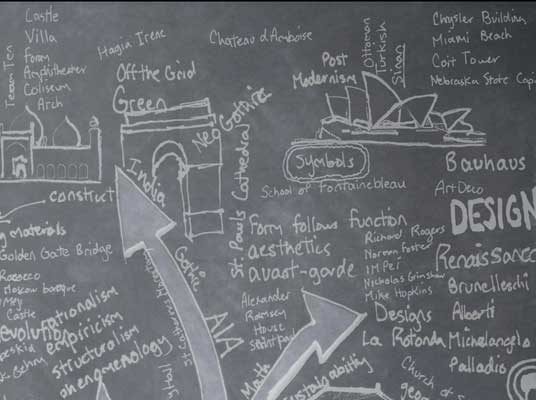 Castle
Villa
Form
Amphitheater
Coliseum
Arch
Team Ten
Hagia Irene
Chateau d Amboise
Off the Grid
Green
Neo Gothic
Post
Modernism
Ottoman
Turkish
Sinan
Chrysler Building
Miami Beach
Coit Tower
Nebraska State Capi
India
St. Pauls Cathedral
Symbols
School of Fontainebleau
Bauhaus
Art Deco
DESIGN
construct
materials
Golden Gate Bridge
Rococo
Moscow baroque
Castle
Gothic
Form follows function
aesthetics
avant-garde
Richard Rogers
Norman Foster
IM Pei
Nicholas Grimshaw
Mike Hopkins
Renaissance
Brunelleschi
Alberti
Michelangelo
Palladio
Alexander
Ramsey
House
Saint Paul
Designs
La Rotonda
AIA
rationalism
empiricism
structuralism
phenomenology
Gehry
Math
Sustainability
Church of